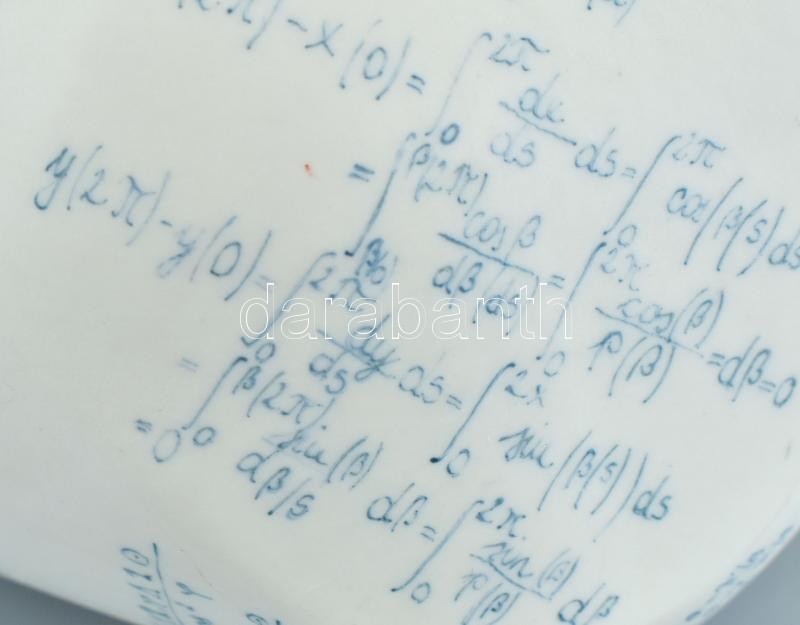 (2π) - x(0) = ∫₀^2π dx/ds ds = ∫₀^2π cos(β(s) ds
= ∫_β(0)^β(2π) cosβ/dβ/ds = ∫₀^2π cos(β)/p(β) = dβ = 0
y(2π) - y(0) = ∫₀^2π dy/ds ds = ∫₀^2x sin(β(s)) ds
= ∫₀^β(2π) sin(β)/dβ/s dβ = ∫₀^2π sin(β)/p(β) dβ
= 0
darabanth